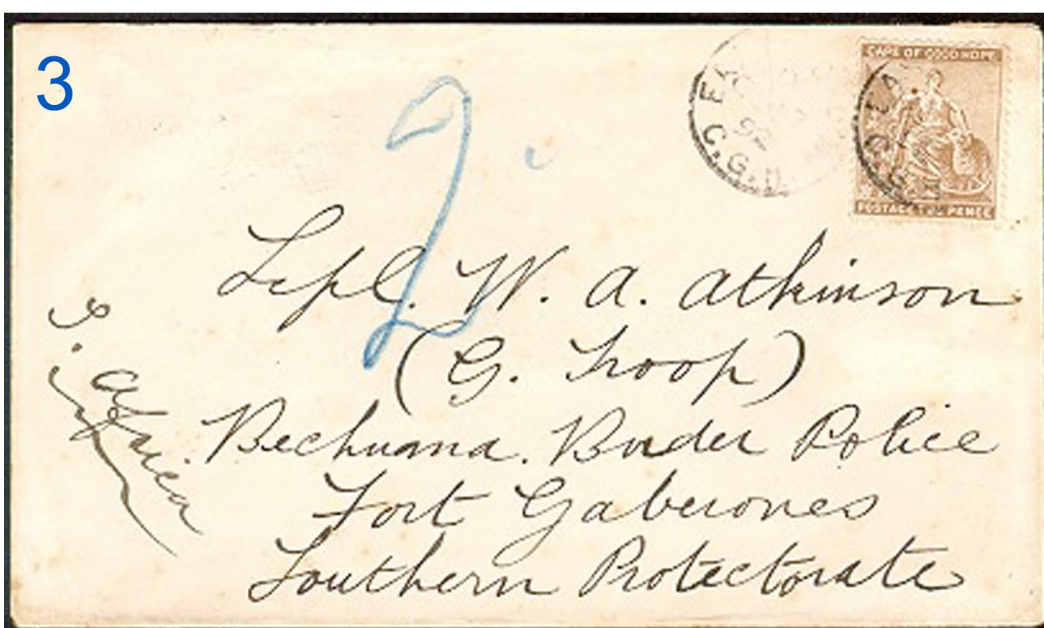 3
CAPE OF GOOD HOPE
POSTAGE TWO PENCE
EA
92
C.G.H
EA
C.G.H
2
Lcpl. W. A. Atkinson
(G. Troop)
Bechuana. Border Police
Fort Gaberones
Southern Protectorate
S. Africa